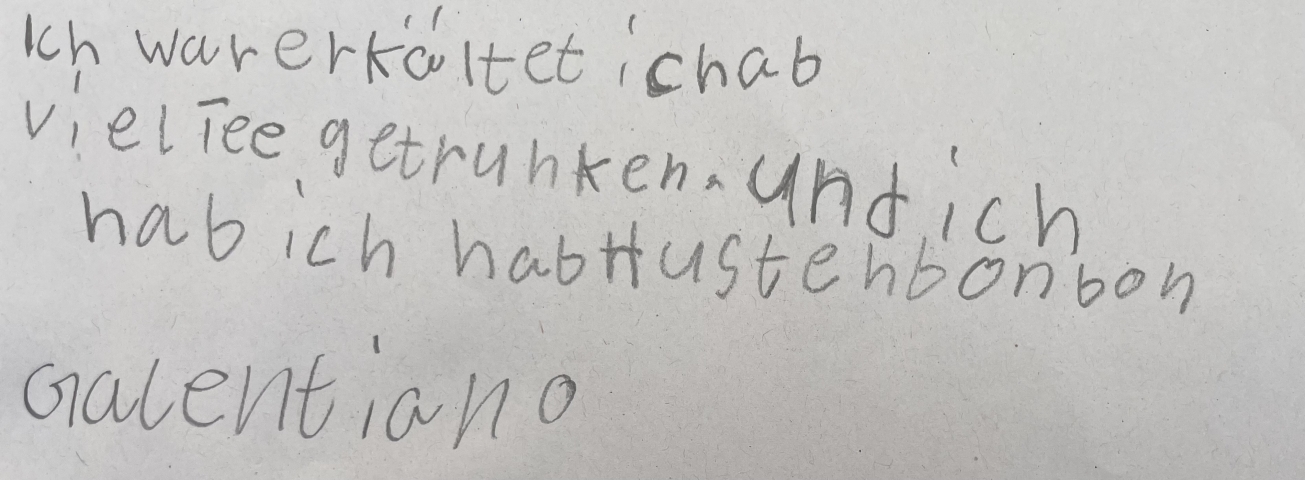 Ich war erkältet ichab
viel Tee getrunken. und ich
hab ich hab Hustenbonbon
Galentiano